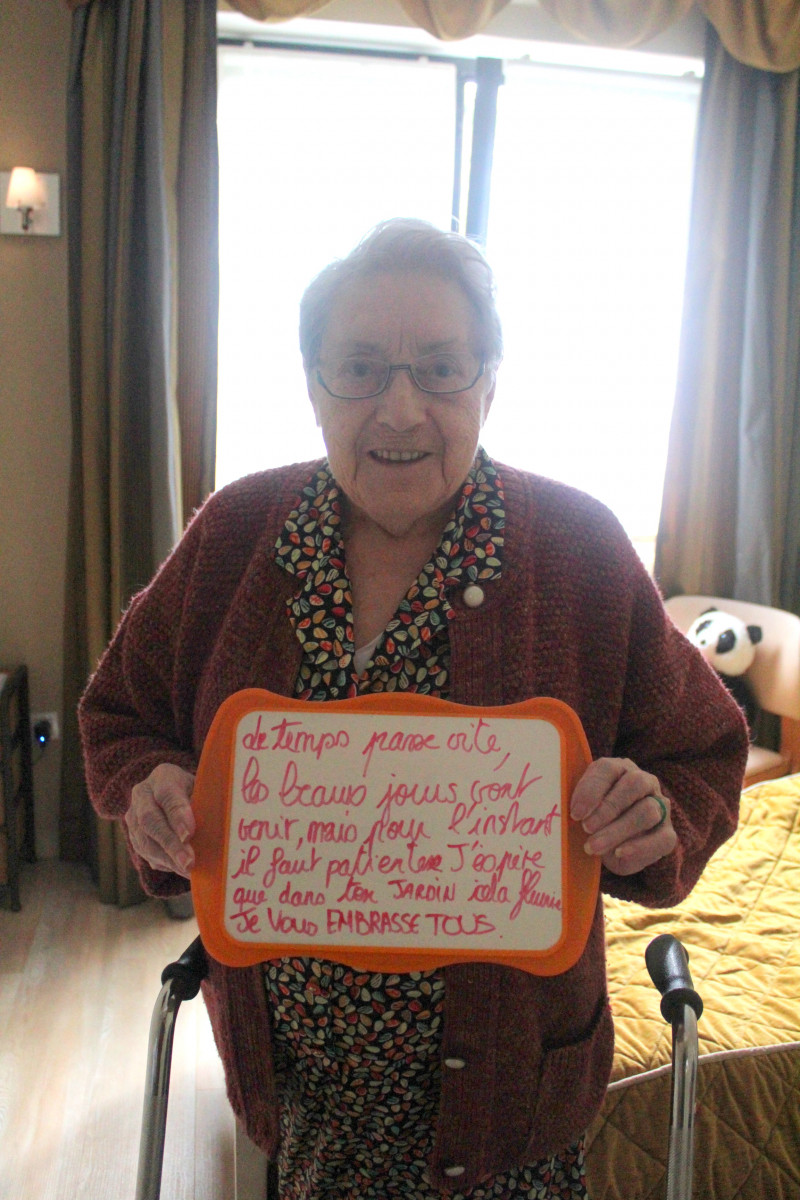 Le temps passe vite,
les beaux jours vont
venir, mais pour l'instant
il faut patienter J'espère
que dans ton JARDIN cela fleurie
Je Vous EMBRASSE TOUS.